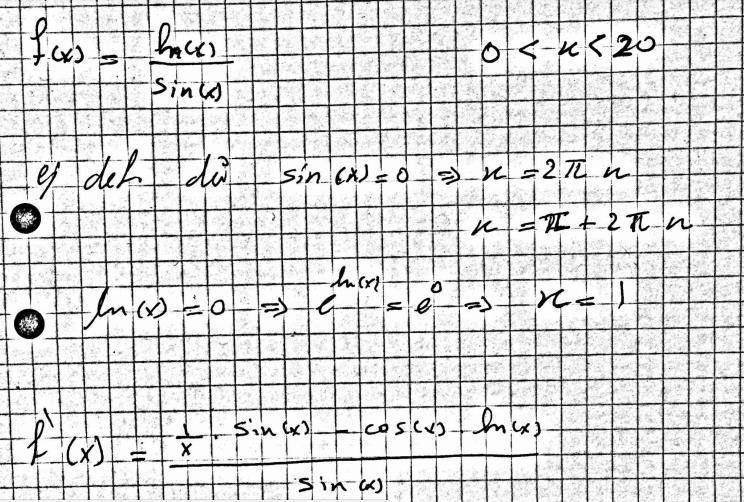 f(x) = ln(x) / sin(x)    0 < x < 20
ej def då sin(x) = 0 ⇒ x = 2π n
x = π + 2π n
ln(x) = 0 ⇒ e^ln(x) = e^0 ⇒ x = 1
f'(x) = (1/x · sin(x) - cos(x) ln(x)) / sin(x)